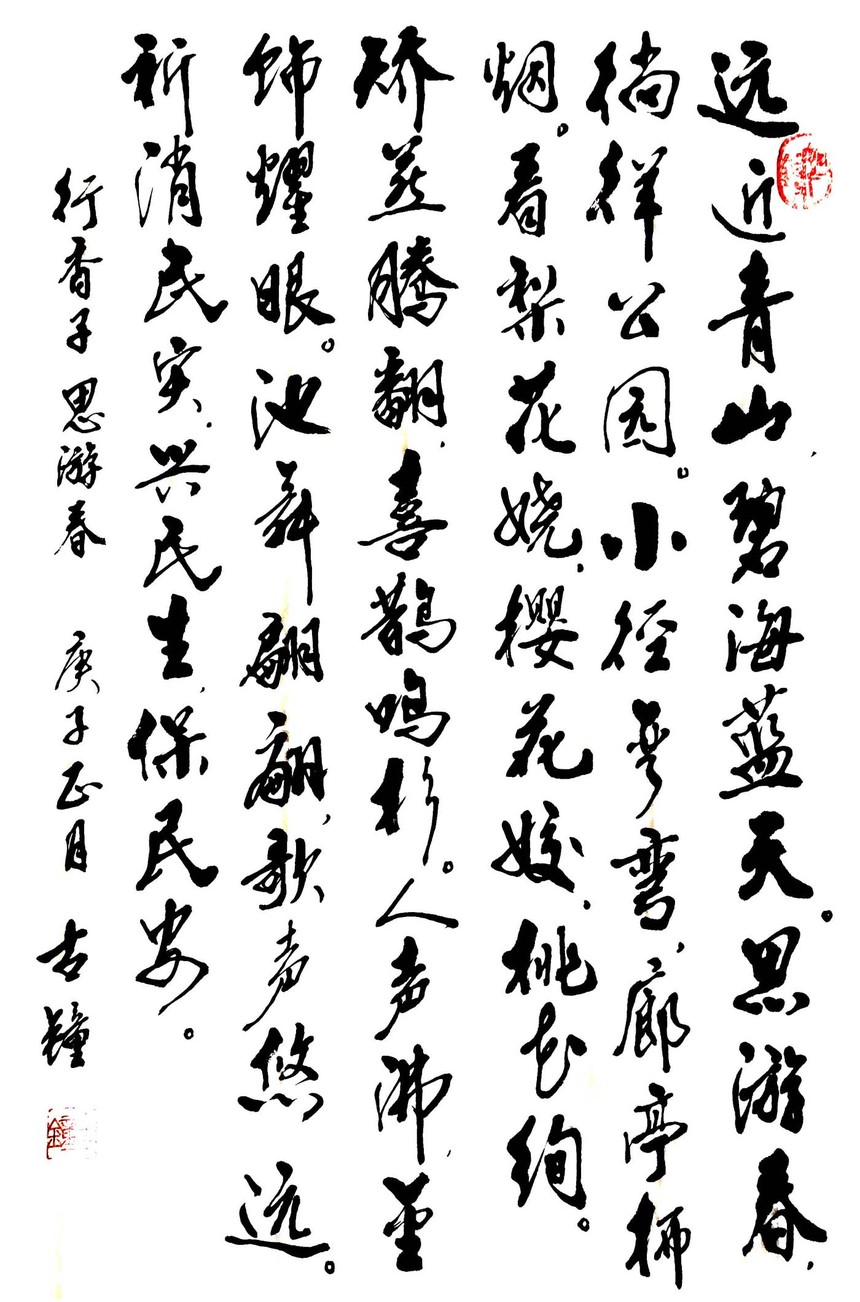 远近青山，碧海蓝天。思游春，
徜徉公园。小径弯弯，廊亭柳
烟。看梨花娆，樱花姣，桃花绚。
矫燕腾翻，喜鹊鸣杉。人声沸，
饰耀眼。池舞翩翩，歌声悠远。
祈消民灾，兴民生，保民安。
行香子 思游春 庚子正月 古钟